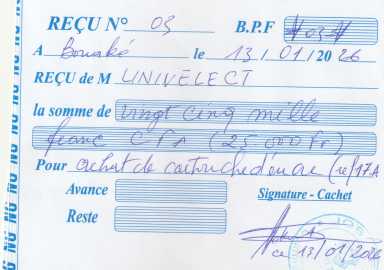 REÇU N° 03 B.P.F
A Bouaké le 13 / 01 / 20 26
REÇU de M UNIVELECT
la somme de vingt cinq mille
franc CFA (25 000 Fr)
Pour achat de cartouche d'encre (
Avance Signature - Cachet
Reste
13/01/2026